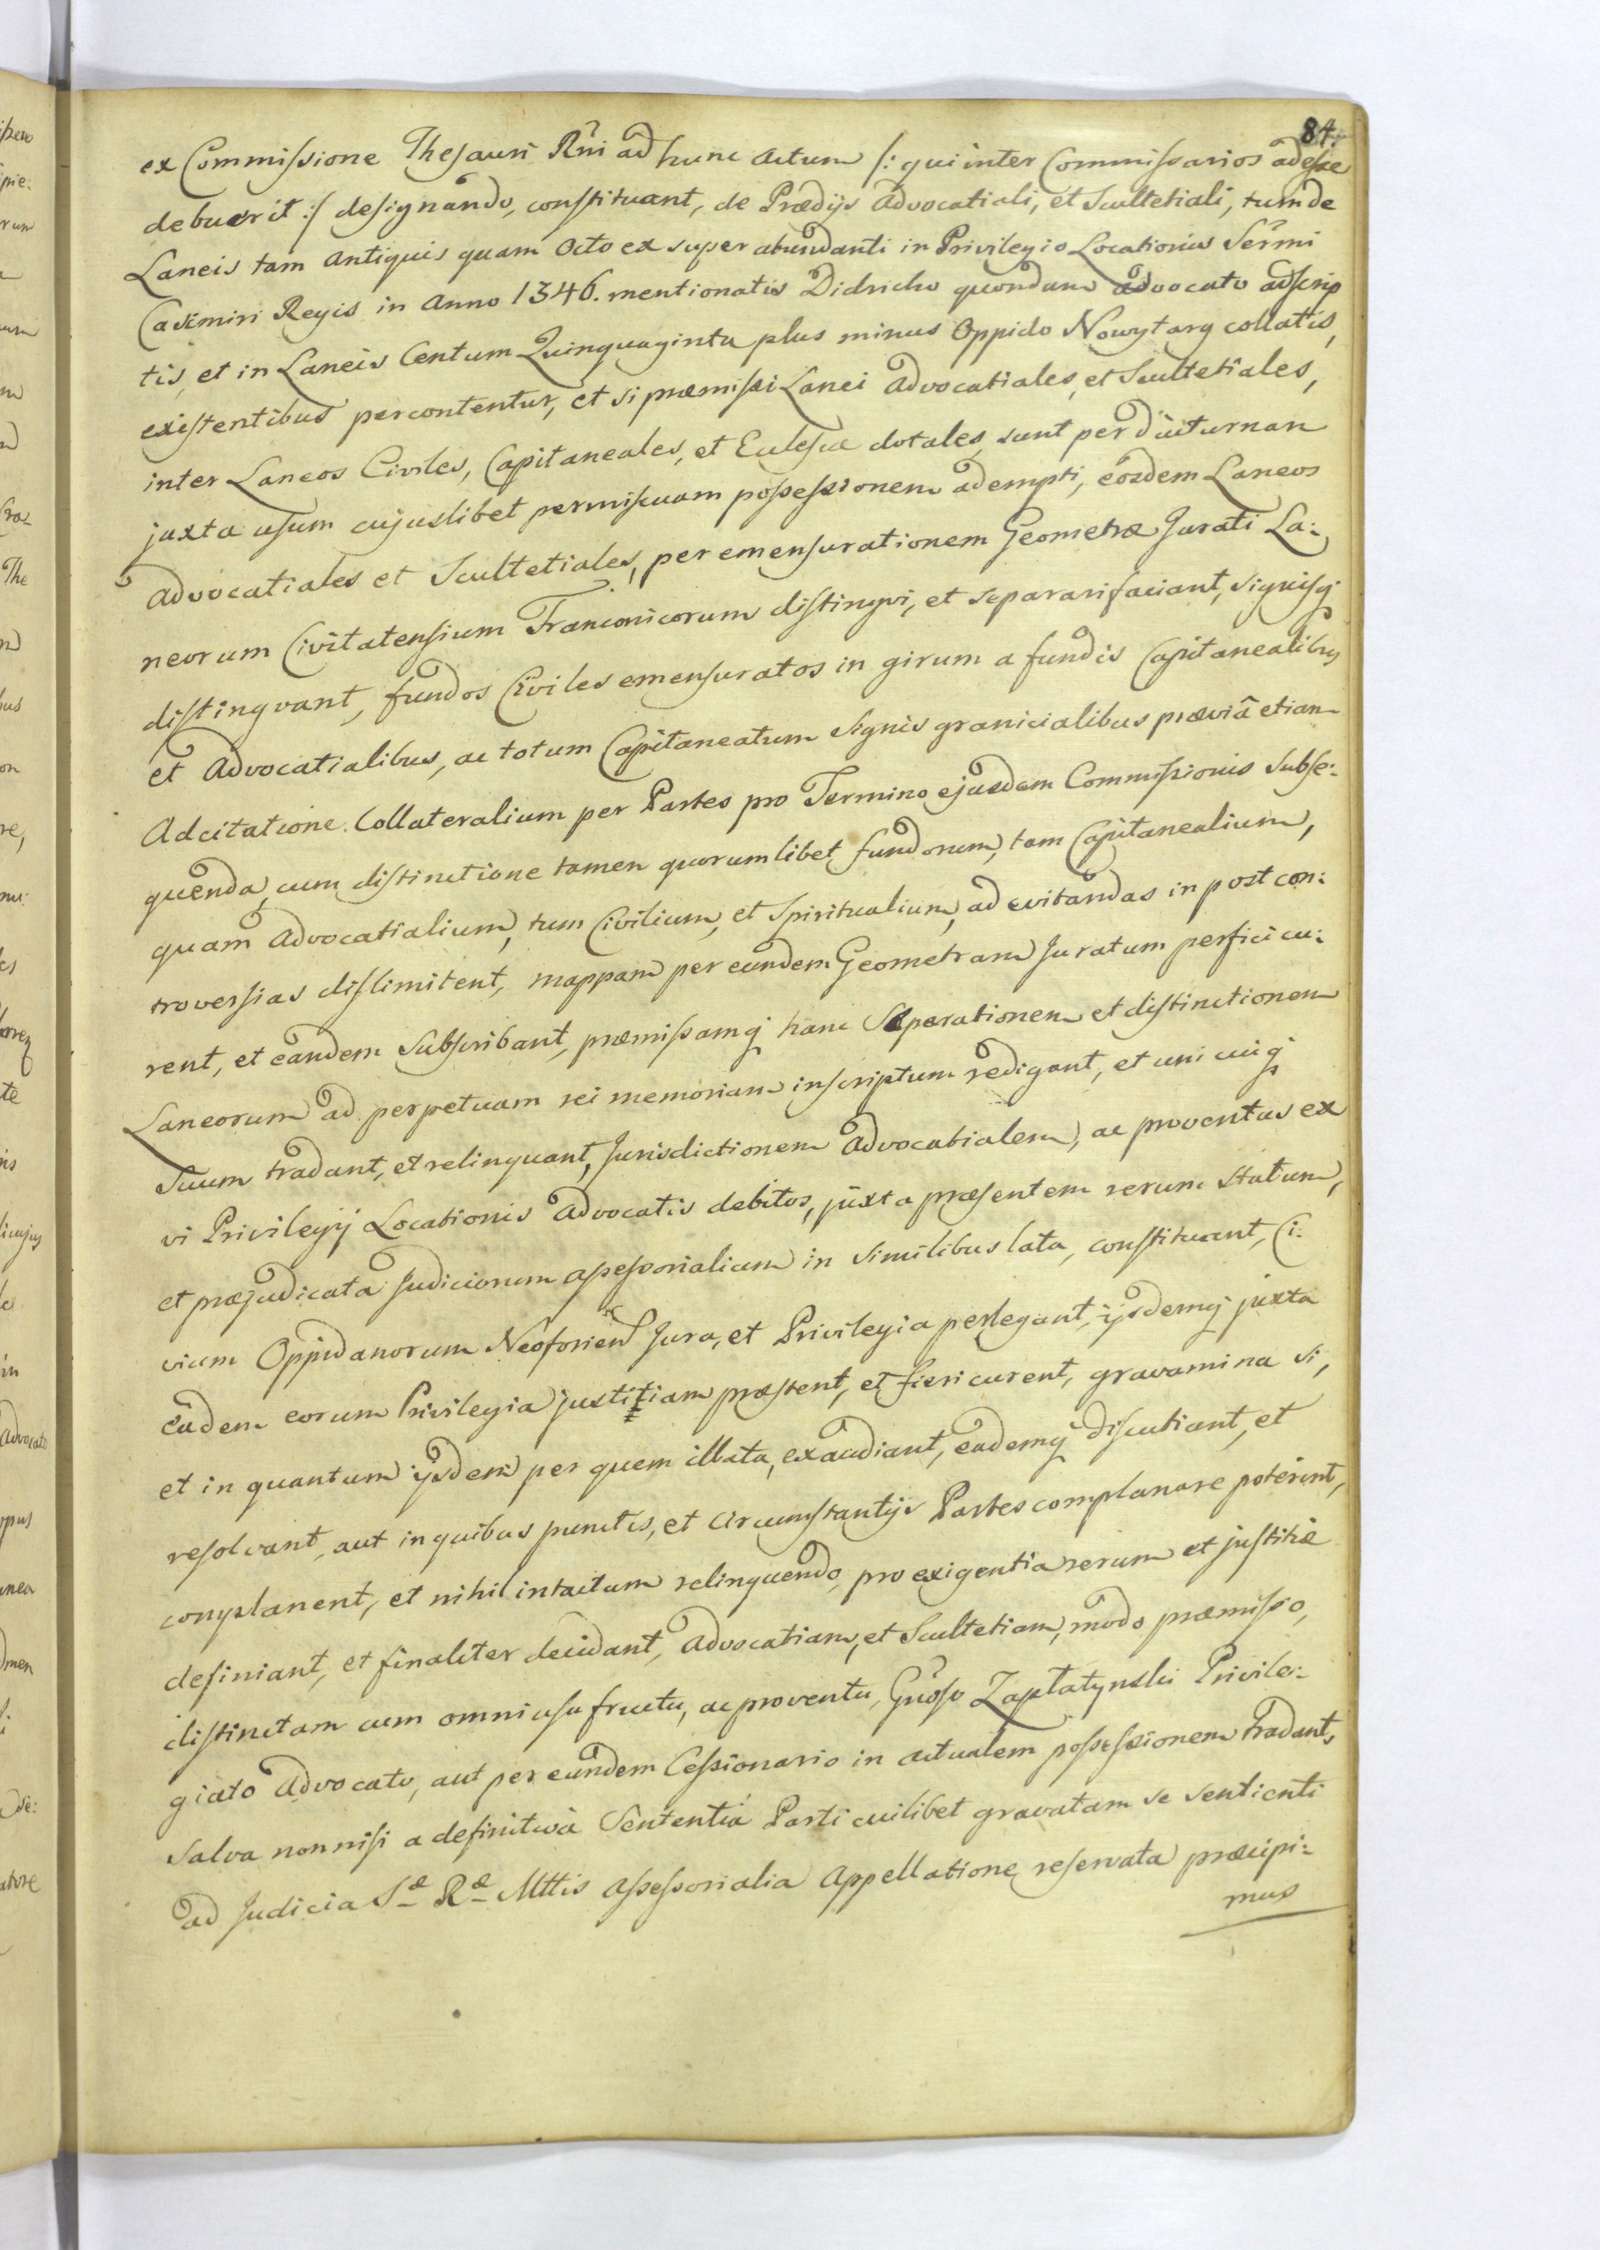 84.
ex Commissione Thesauri Rni ad hunc actum /: qui inter Commissarios adesse
debuerit :/ designando, constituant, de Prædijs Advocatiali, et Scultetiali, tum de
Laneis tam antiquis quam Octo ex super abundanti in Privilegio Locationis Sermi
Casimiri Regis in Anno 1346. mentionatis Didricho quondam advocato adscrip
tis, et in Laneis Centum Quinquaginta plus minus Oppido Nowytarg collatis,
existentibus percontentur, et si præmissi Lanei Advocatiales, et Scultetiales,
inter Laneos Civiles, Capitaneales, et Eclesiæ dotales, sunt per diuturnam
juxta usum cujuslibet permiscuam possessionem adempti, eosdem Laneos
Advocatiales et Scultetiales, per emensurationem Geometræ Jurati La:
neorum Civitatensium Franconicorum distingvi, et separari faciant, signisq
distingvant, fundos Civiles emensuratos in girum a fundis Capitanealibus
et Advocatialibus, ac totum Capitaneatum signis granicialibus præviâ etiam
Adcitatione Collateralium per Partes pro Termino ejusdem Commissionis subse:
quenda, cum distinctione tamen quorumlibet fundorum, tam Capitanealium,
quam Advocatialium, tum Civilium, et Spiritualium, ad evitandas in post con:
troversias dislimitent, mappam per eundem Geometram Juratum perfici cu:
rent, et eandem subscribant, præmissamq hanc Seperationem et distinctionem
Laneorum ad perpetuam rei memoriam inscriptum redigant, et uni cuiq
Suum tradant, et relinquant, Jurisdictionem Advocatialem, ac proventus ex
vi Privilegij Locationis Advocatis debitos, juxta præsentem rerum statum,
et præjudicata Judiciorum assessorialium in similibus lata, constituant, Ci:
vium Oppidanorum Neoforien Jura, et Privilegia perlegant, ijsdemq juxta
eadem eorum Privilegia justitiam præstent, et fieri curent, gravamina si,
et in quantum ijsdem per quem illata, exaudiant, eademq discutiant, et
resolvant, aut in quibus punctis, et circumstantijs Partes complanare poterint,
complanent, et nihil intactum relinquendo, pro exigentia rerum et justitiæ
definiant, et finaliter decidant, Advocatiam, et Scultetiam, modo præmisso,
distinctam cum omni usu fructu, ac proventu, Gnoso Zaplatynski Privile:
giato Advocato, aut per eundem Cessionario in actualem possessionem tradant,
salva nonnisi a definitivâ Sententiâ Parti cuilibet gravatam se sentienti
ad Judicia Sæ Ræ Mttis Assessorialia Appellatione reservata præcipi:
mus